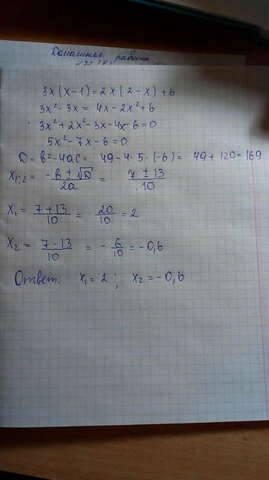 Домашняя работа
3x(x-1)=2x(2-x)+6
3x²-3x=4x-2x²+6
3x²+2x²-3x-4x-6=0
5x²-7x-6=0
D=b²-4ac=49-4·5·(-6)=49+120=169
x₁,₂ = (-b±√D)/2a = (7±13)/10
x₁ = (7+13)/10 = 20/10 = 2
x₂ = (7-13)/10 = -6/10 = -0,6
Ответ: x₁=2; x₂=-0,6